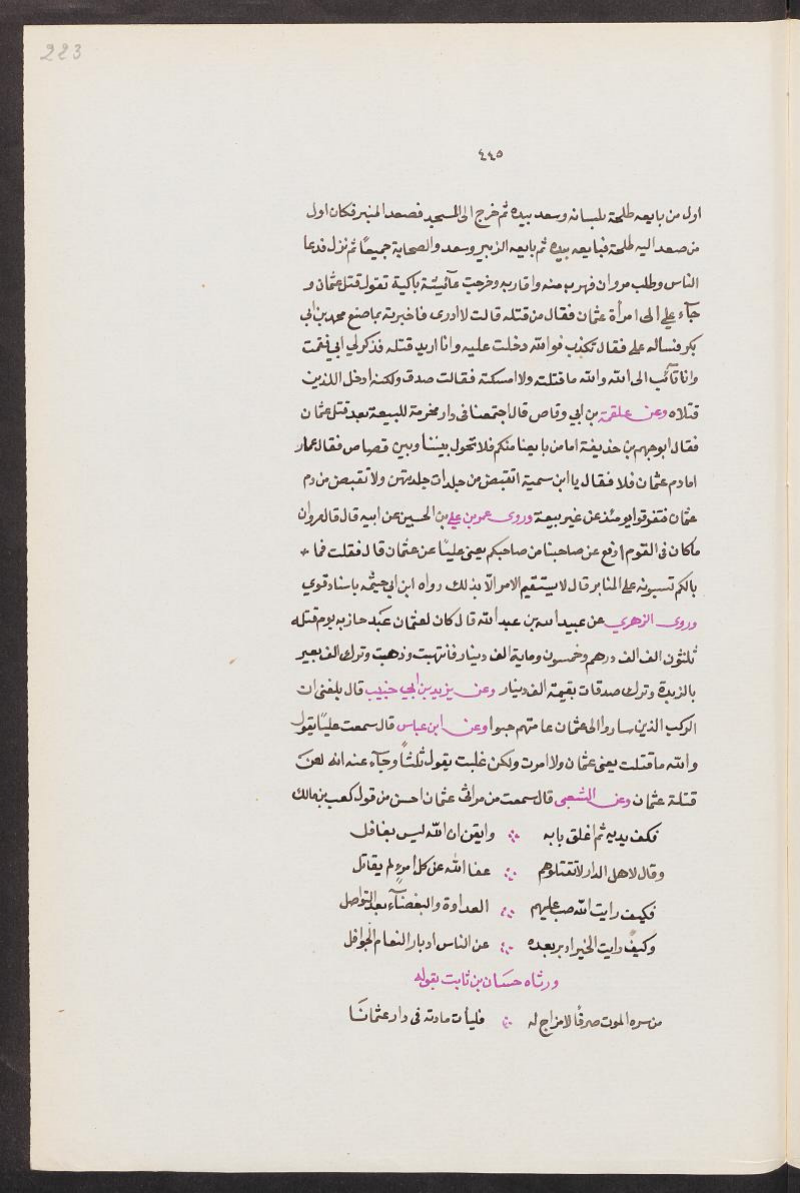 223
٤٤٥
اول من بايعه طلحة بلسانه وسعد بيده ثم خرج الى المسجد فصعد المنبر فكان اول
من صعد اليه طلحة فبايعه بيده ثم بايعه الزبير وسعد والصحابة جميعًا ثم نزل فدعا
الناس وطلب مروان فهرب منه واقاربه وخرجت عآئيشة باكية تقول قتل عثمان و
جآء علي الى امرأة عثمان فقال من قتله قالت لا ادرى فاخبرته بما صنع محمد بن ابي
بكر فنساله على فقال تكذب فوالله دخلت عليه وانا اريد قتله فذكر لي ابي فقمت
وانا تآئب الى الله والله ما قتلته ولا امسكته فقالت صدق ولكنه ادخل اللذين
قتلاه وعن علقمة بن ابي وقاص قال اجتمعنا في دار مخرمة للبيعة بعد قتل عثمان
فقال ابو جهم بن حذيفة اما من بايعنا منكم فلا تحول بيننا وبين قصاص فقال عمار
اما دم عثمان فلا فقال يا ابن سمية اتقبض من جلدات جلدتهن ولا تقبص من دم
عثمان فتفرقوا يومئذ عن غير بيعة وروى عمر بن علي بن الحسين عن ابيه قال قال مروان
ما كان في القوم ارفع عن صاحبنا من صاحبكم يعني عليًا عن عثمان قال فقلت فما
بالكم تسبونه على المنابر قال لا يستقيم الامر الا بذلك رواه ابن ابي خيثمه باسناد قوي
وروى الزهري عن عبيد الله بن عبد الله قال كان لعثمان عند خازنه يوم قتله
ثلثون الف الف درهم وخمسون وماية الف دينار فانتهبت وذهبت وترك الف بعير
بالربذة وترك صدقات بقيمة الف دينار وعن يزيد بن ابي حبيب قال بلغني ان
الركب الذين ساروا الى عثمان عامتهم جنوا وعن ابن عباس قال سمعت عليًا يقول
والله ما قتلت يعني عثمان ولا امرت ولكن غلبت يقول ثلثًا وجآء عنه انه لعن
قتلة عثمان وعن الشعبى قال سمعت من مراثي عثمان احسن من قول كعب بن مالك
فكف يديه ثم اغلق بابه وايقن ان الله ليس بغافل
وقال لاهل الدار لا تقتلوهم عفا الله عن كل امرءٍ لم يقاتل
فكيف رايت الله صب عليهم العداوة والبغضآء بعد التواصل
وكيف رايت الخير ادبر بعده عن الناس ادبار النعام الجوافل
ورثاه حسان بن ثابت بقوله
من سره الموت صرفًا لا مزاج له فليأت مادته في دار عثمانَا